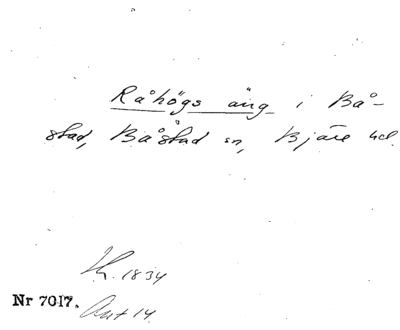 Råhögs äng i Bå-
stad, Båstad sn, Bjäre hd.
Lh. 1834
Nr 7017.
Akt 14